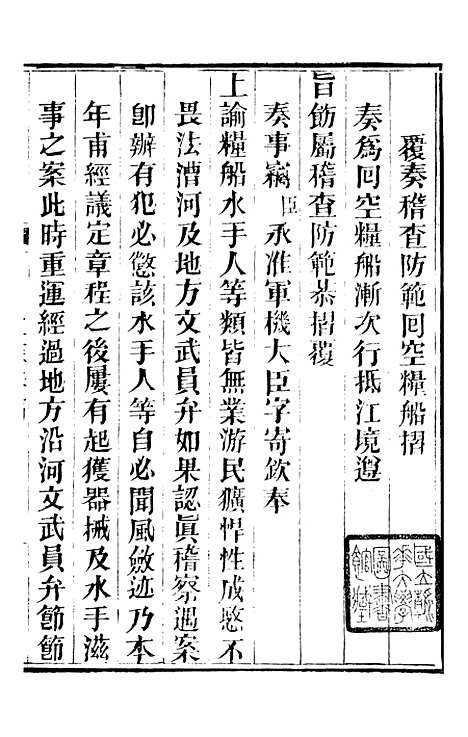 覆奏稽查防範囘空糧船摺
奏爲囘空糧船漸次行抵江境遵
旨飭屬稽查防範恭摺覆
奏事竊臣承准軍機大臣字寄欽奉
上諭糧船水手人等類皆無業游民獷悍性成愍不
畏法漕河及地方文武員弁如果認眞稽察遇案
卽辦有犯必懲該水手人等自必聞風斂迹乃本
年甫經議定章程之後屢有起獲器械及水手滋
事之案此時重運經過地方沿河文武員弁節節
國立清華大學圖書館藏